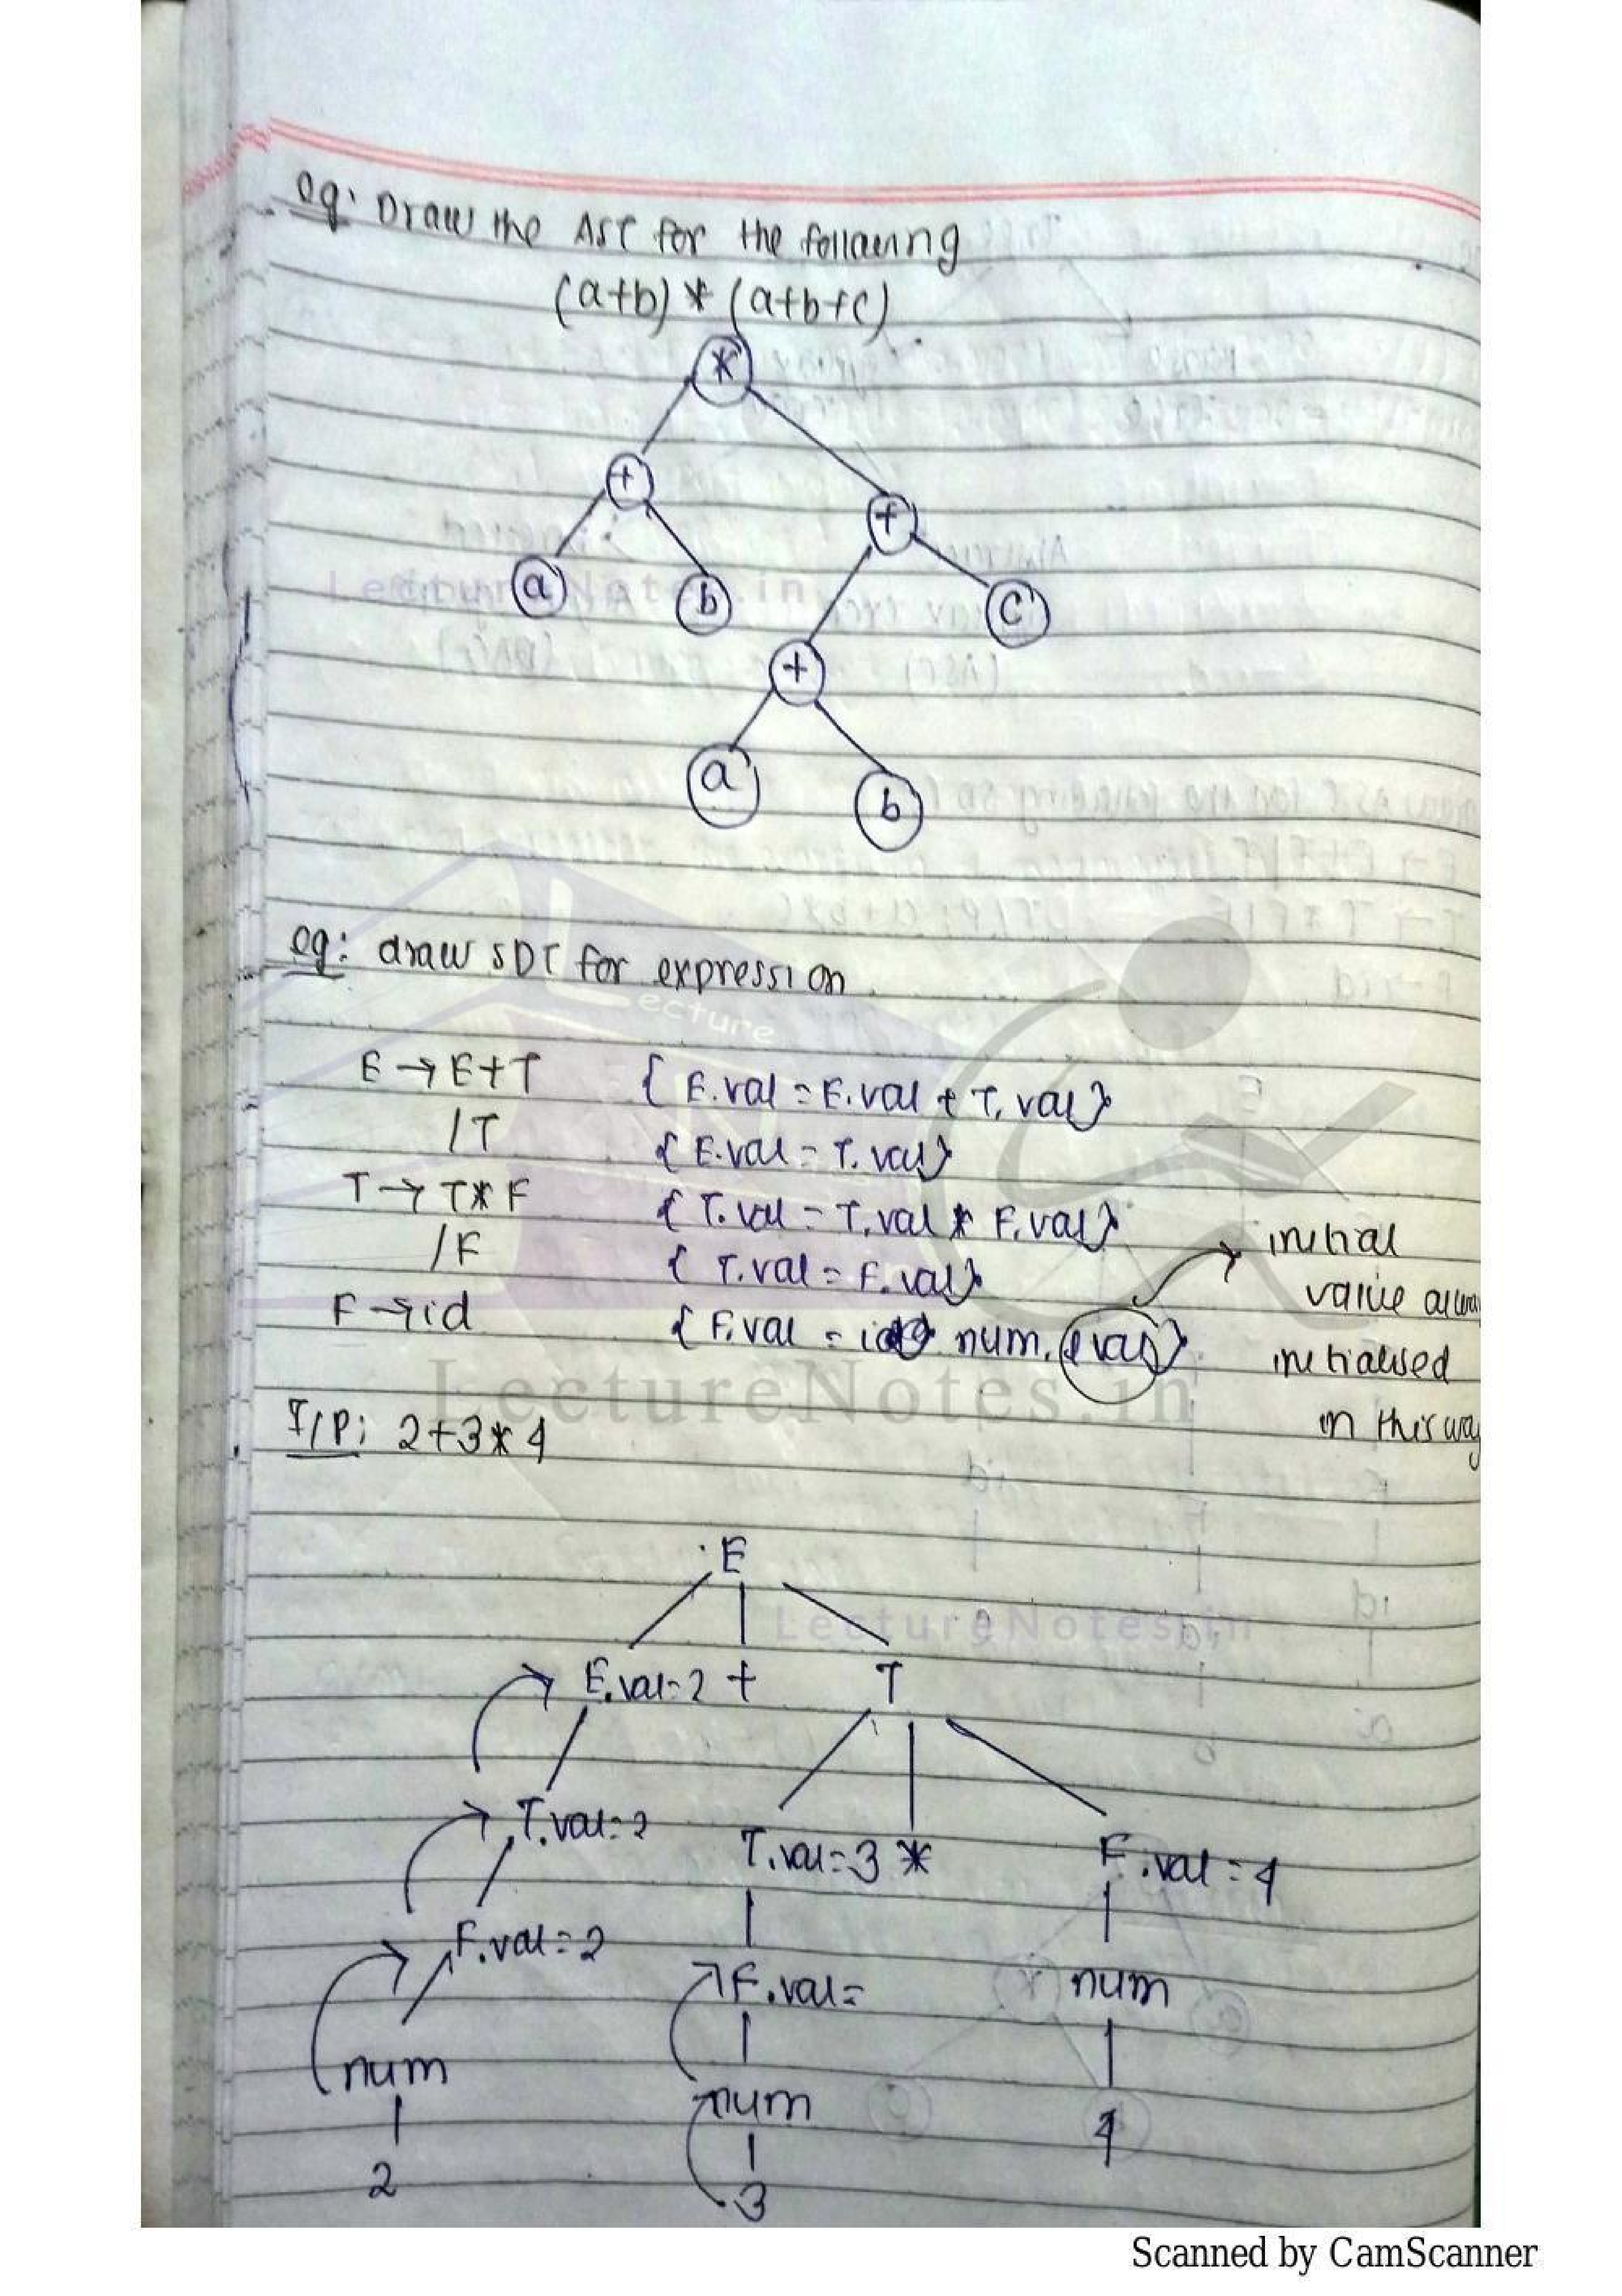 eg: Draw the AST for the following
(a+b) * (a+b+c)
*
+
+
a
b
c
+
a
b
eg: draw SDT for expression
E → E+T { E.val = E.val + T.val }
/T { E.val = T.val }
T → T * F { T.val = T.val * F.val }
/F { T.val = F.val }
F → id { F.val = num.lval }
initial
value alwa
initialised
in this way
I/P: 2+3*4
E
E.val=2 + T
T.val=2
T.val=3 * F.val=4
F.val=2
F.val= num
num
num
4
2
3
LectureNotes.in
Lecture
LectureNotes.in
LectureNotes.in
Scanned by CamScanner